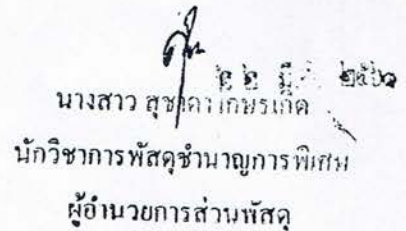 ๒๒ มี.ค. ๒๕๖๑
นางสาว สุชาดา เกษรเกิด
นักวิชาการพัสดุชำนาญการพิเศษ
ผู้อำนวยการส่วนพัสดุ